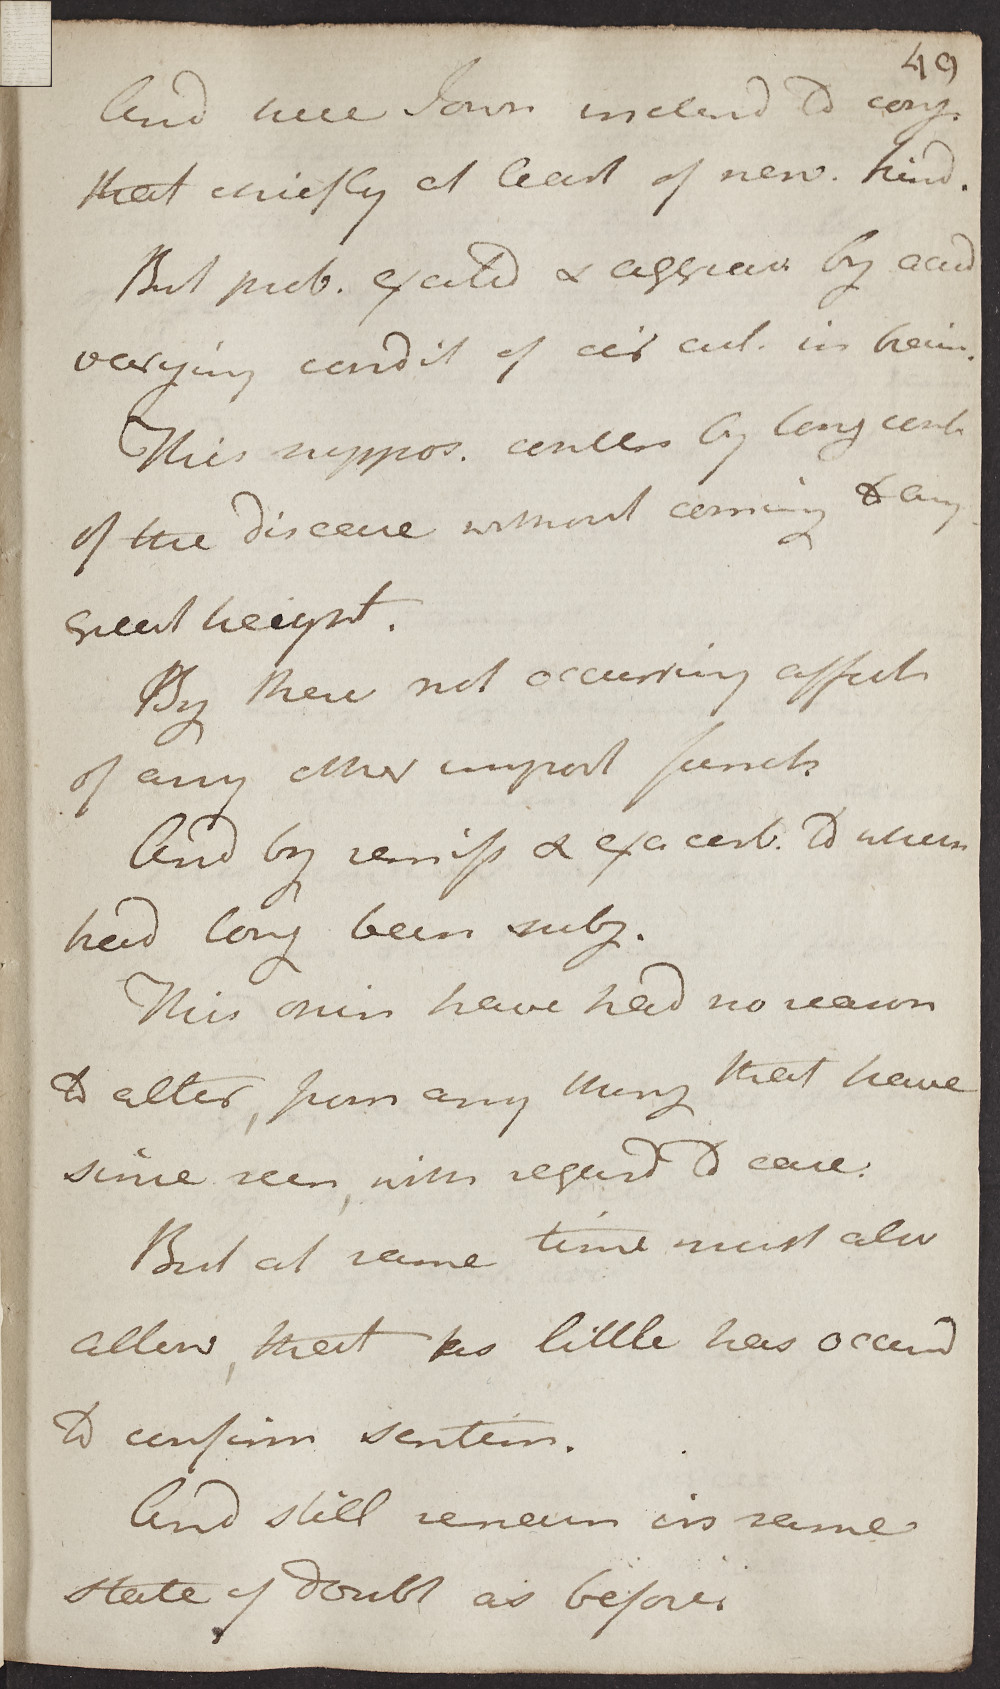 49
And here I own inclend to conj.
that chiefly at least of nerv. kind.
But prob. excited & aggrav. by accid
varying condit of circul. in brain.
This suppos. confirm by long cont
of the disease without coming to any
great height.
By there not occurring affect
of any other import funct
And by remiss & exacerb. to whom
had long been subj.
This opin have had no reason
to alter, from any thing that have
since seen, with regard to case.
But at same time must also
allow, that as little has occurd
to confirm sentim.
And still remain in same
state of doubt as before.